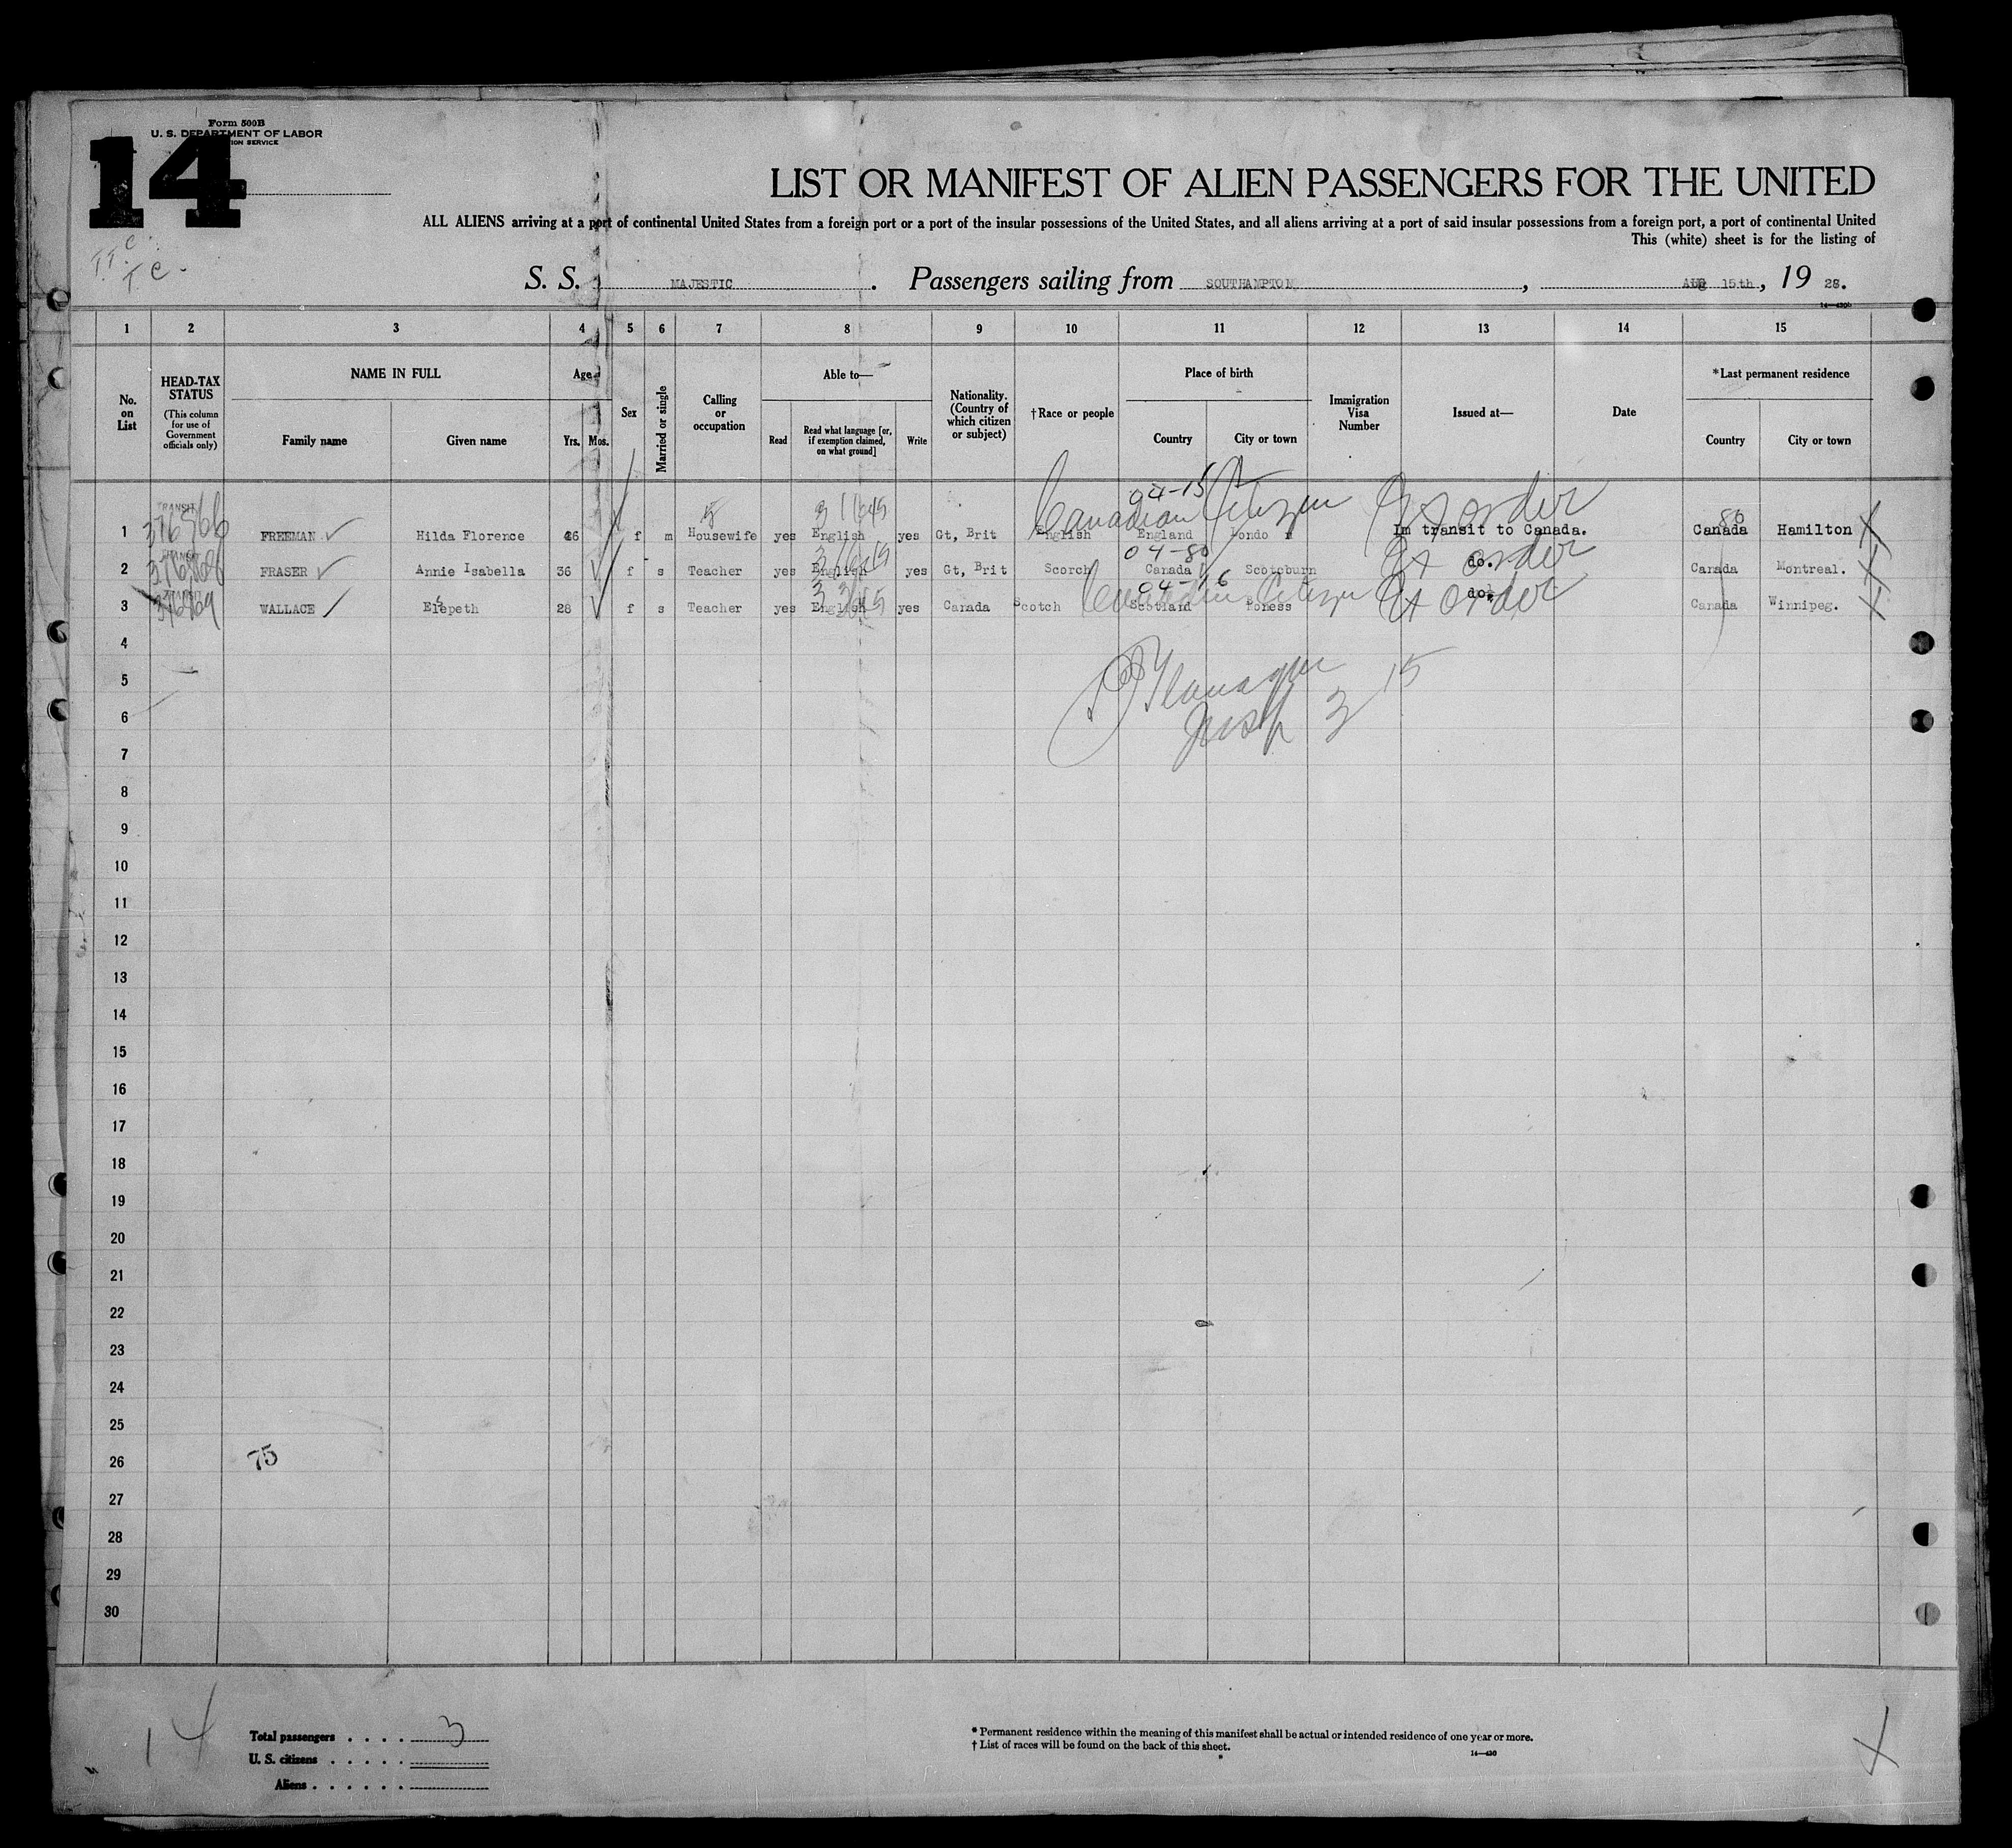 Form 500B
U. S. DEPARTMENT OF LABOR
ION SERVICE
14
LIST OR MANIFEST OF ALIEN PASSENGERS FOR THE UNITED
ALL ALIENS arriving at a port of continental United States from a foreign port or a port of the insular possessions of the United States, and all aliens arriving at a port of said insular possessions from a foreign port, a port of continental United
This (white) sheet is for the listing of
S. S. MAJESTIC. Passengers sailing from SOUTHAMPTON, Aug 15th, 19 28.
1 2 3 4 5 6 7 8 9 10 11 12 13 14 15
No. on List
HEAD-TAX STATUS
(This column for use of Government officials only)
NAME IN FULL
Family name Given name
Age
Yrs. Mos.
Sex
Married or single
Calling or occupation
Able to—
Read
Read what language [or, if exemption claimed, on what ground]
Write
Nationality. (Country of which citizen or subject)
†Race or people
Place of birth
Country City or town
Immigration Visa Number
Issued at—
Date
*Last permanent residence
Country City or town
04-15
Canadian Citizen
1 TRANSIT FREEMAN Hilda Florence 46 f m Housewife yes English yes Gt, Brit English England Londo n In transit to Canada. Canada Hamilton
04-80
2 TRANSIT FRASER Annie Isabella 36 f s Teacher yes English yes Gt, Brit Scorch Canada Scotsburn do. Canada Montreal.
04-16
Canadian Citizen
3 TRANSIT WALLACE Elspeth 28 f s Teacher yes English yes Canada Scotch Scotland Boness do. Canada Winnipeg.
4
5
6
7
8
9
10
11
12
13
14
15
16
17
18
19
20
21
22
23
24
25
26 75
27
28
29
30
14
Total passengers . . . . 3
U. S. citizens . . . . .
Aliens . . . . . .
* Permanent residence within the meaning of this manifest shall be actual or intended residence of one year or more.
† List of races will be found on the back of this sheet.
14—430
X